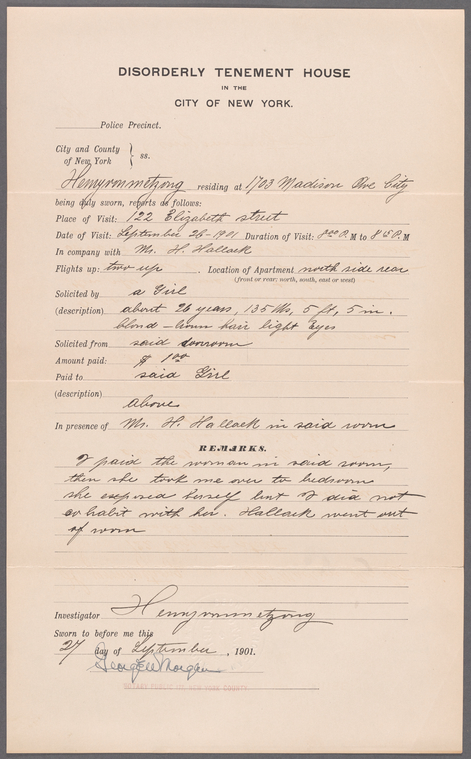 DISORDERLY TENEMENT HOUSE
IN THE
CITY OF NEW YORK.
Police Precinct.
City and County
of New York } ss.
residing at 1703 Madison Ave City
being duly sworn, reports as follows:
Place of Visit: 122 Elizabeth street
Date of Visit: September 26-1901 Duration of Visit: 8 P.M to 8 P.M
In company with Mr. H. Hallack
Flights up: two up . Location of Apartment north side rear
(front or rear: north, south, east or west)
Solicited by a Girl
(description) about 26 years, 135 lbs, 5 ft, 5 in.
blond hair light eyes
Solicited from said
Amount paid: $ 1.00
Paid to said Girl
(description)
above
In presence of Mr. H. Hallack in said room
REMARKS.
I paid the woman in said room,
then she took me over to bedroom
she exposed herself but I did not
cohabit with her. Hallack went out
of room
Investigator
Sworn to before me this
27 day of September , 1901.
George W Morgan
NOTARY PUBLIC NEW YORK COUNTY